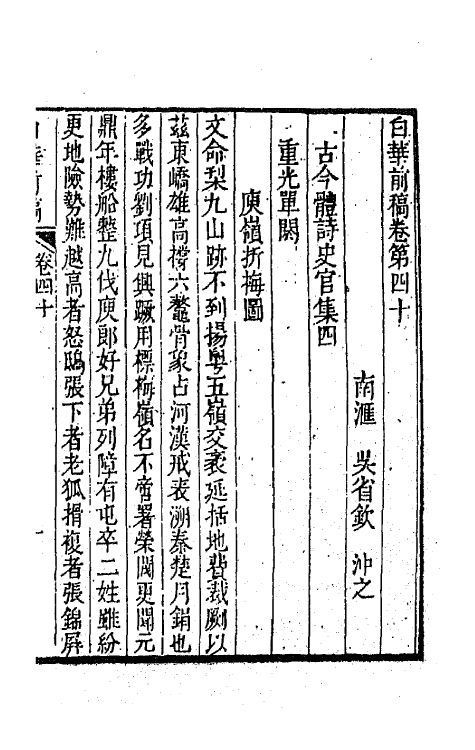 白華前稿卷第四十
南滙　吳省欽　沖之
古今體詩史官集四
重光單閼
庾嶺折梅圖
文命梨九山跡不到揚粤五嶺交袤延括地費裁劂以
茲東嶠雄高撐六鼇骨象占河漢戒表溯秦楚月鋗也
多戰功劉項見興蹶用標梅嶺名不啻署榮閥更聞元
鼎年樓船整九伐庾郎好兄弟列障有屯卒二姓雖紛
更地險勢難越高者怒鴟張下者老狐搰複者張錦屏
白華前稿
卷四十
一